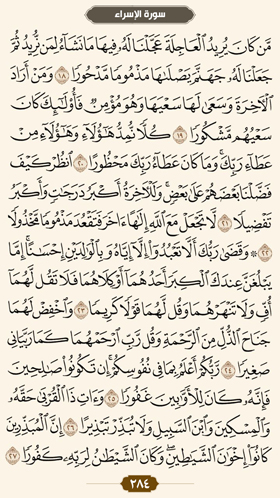 سورة الإسراء
مَّن كَانَ يُرِيدُ ٱلْعَاجِلَةَ عَجَّلْنَا لَهُۥ فِيهَا مَا نَشَآءُ لِمَن نُّرِيدُ ثُمَّ
جَعَلْنَا لَهُۥ جَهَنَّمَ يَصْلَىٰهَا مَذْمُومًا مَّدْحُورًا ١٨ وَمَنْ أَرَادَ
ٱلْأٓخِرَةَ وَسَعَىٰ لَهَا سَعْيَهَا وَهُوَ مُؤْمِنٌ فَأُو۟لَٰٓئِكَ كَانَ
سَعْيُهُم مَّشْكُورًا ١٩ كُلًّا نُّمِدُّ هَٰٓؤُلَآءِ وَهَٰٓؤُلَآءِ مِنْ
عَطَآءِ رَبِّكَ ۚ وَمَا كَانَ عَطَآءُ رَبِّكَ مَحْظُورًا ٢٠ ٱنظُرْ كَيْفَ
فَضَّلْنَا بَعْضَهُمْ عَلَىٰ بَعْضٍ ۚ وَلَلْأٓخِرَةُ أَكْبَرُ دَرَجَٰتٍ وَأَكْبَرُ
تَفْضِيلًا ٢١ لَّا تَجْعَلْ مَعَ ٱللَّهِ إِلَٰهًا ءَاخَرَ فَتَقْعُدَ مَذْمُومًا مَّخْذُولًا
٢٢ ۞ وَقَضَىٰ رَبُّكَ أَلَّا تَعْبُدُوٓا۟ إِلَّآ إِيَّاهُ وَبِٱلْوَٰلِدَيْنِ إِحْسَٰنًا ۚ إِمَّا
يَبْلُغَنَّ عِندَكَ ٱلْكِبَرَ أَحَدُهُمَآ أَوْ كِلَاهُمَا فَلَا تَقُل لَّهُمَآ
أُفٍّ وَلَا تَنْهَرْهُمَا وَقُل لَّهُمَا قَوْلًا كَرِيمًا ٢٣ وَٱخْفِضْ لَهُمَا
جَنَاحَ ٱلذُّلِّ مِنَ ٱلرَّحْمَةِ وَقُل رَّبِّ ٱرْحَمْهُمَا كَمَا رَبَّيَانِى
صَغِيرًا ٢٤ رَّبُّكُمْ أَعْلَمُ بِمَا فِى نُفُوسِكُمْ ۚ إِن تَكُونُوا۟ صَٰلِحِينَ
فَإِنَّهُۥ كَانَ لِلْأَوَّٰبِينَ غَفُورًا ٢٥ وَءَاتِ ذَا ٱلْقُرْبَىٰ حَقَّهُۥ
وَٱلْمِسْكِينَ وَٱبْنَ ٱلسَّبِيلِ وَلَا تُبَذِّرْ تَبْذِيرًا ٢٦ إِنَّ ٱلْمُبَذِّرِينَ
كَانُوٓا۟ إِخْوَٰنَ ٱلشَّيَٰطِينِ ۖ وَكَانَ ٱلشَّيْطَٰنُ لِرَبِّهِۦ كَفُورًا ٢٧
٢٨٤